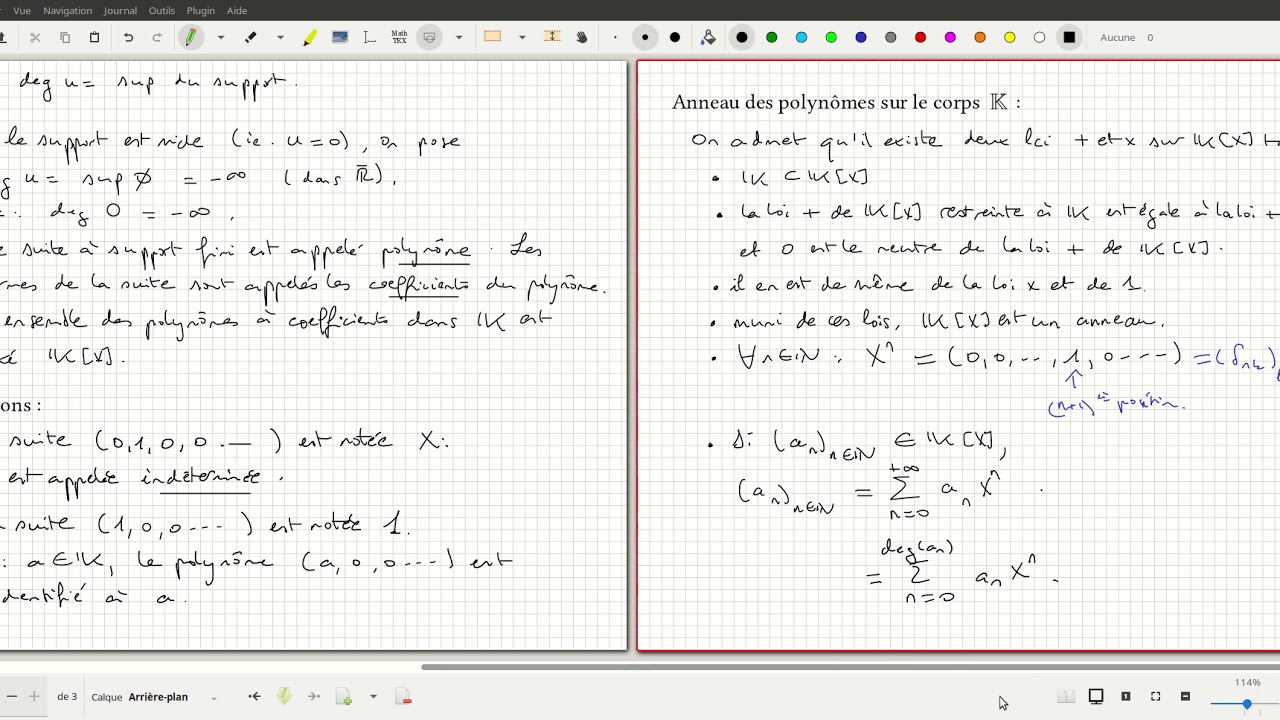 Vue Navigation Journal Outils Plugin Aide
Math TEX
Aucune 0
deg u = sup du support.
le support est vide (ie u = 0), on pose
g u = sup ∅ = -∞ (dans ℝ̅).
deg 0 = -∞.
e suite à support fini est appelé polynôme. Les
mes de la suite sont appelés les coefficients du polynôme.
ensemble des polynômes à coefficients dans 𝕂 est
é 𝕂[X].
ons :
suite (0,1,0,0 ...) est notée X.
est appelée indéterminée.
suite (1,0,0 ...) est notée 1.
: a ∈ 𝕂, le polynôme (a,0,0 ...) est
dentifié à a.
Anneau des polynômes sur le corps 𝕂 :
On admet qu'il existe deux lci + et × sur 𝕂[X] t
• 𝕂 ⊂ 𝕂[X]
• la loi + de 𝕂[X] restreinte à 𝕂 est égale à la loi +
et 0 est le neutre de la loi + de 𝕂[X].
• il en est de même de la loi × et de 1.
• muni de ces lois, 𝕂[X] est un anneau.
• ∀n∈ℕ : Xⁿ = (0,0,..,1,0 ...) = (δ_{nk})
↑
(n+1)ᵉ position.
• Si (a_n)_{n∈ℕ} ∈ 𝕂[X],
(a_n)_{n∈ℕ} = Σ_{n=0}^{+∞} a_n Xⁿ.
= Σ_{n=0}^{deg(a_n)} a_n Xⁿ.
de 3 Calque Arrière-plan
114%